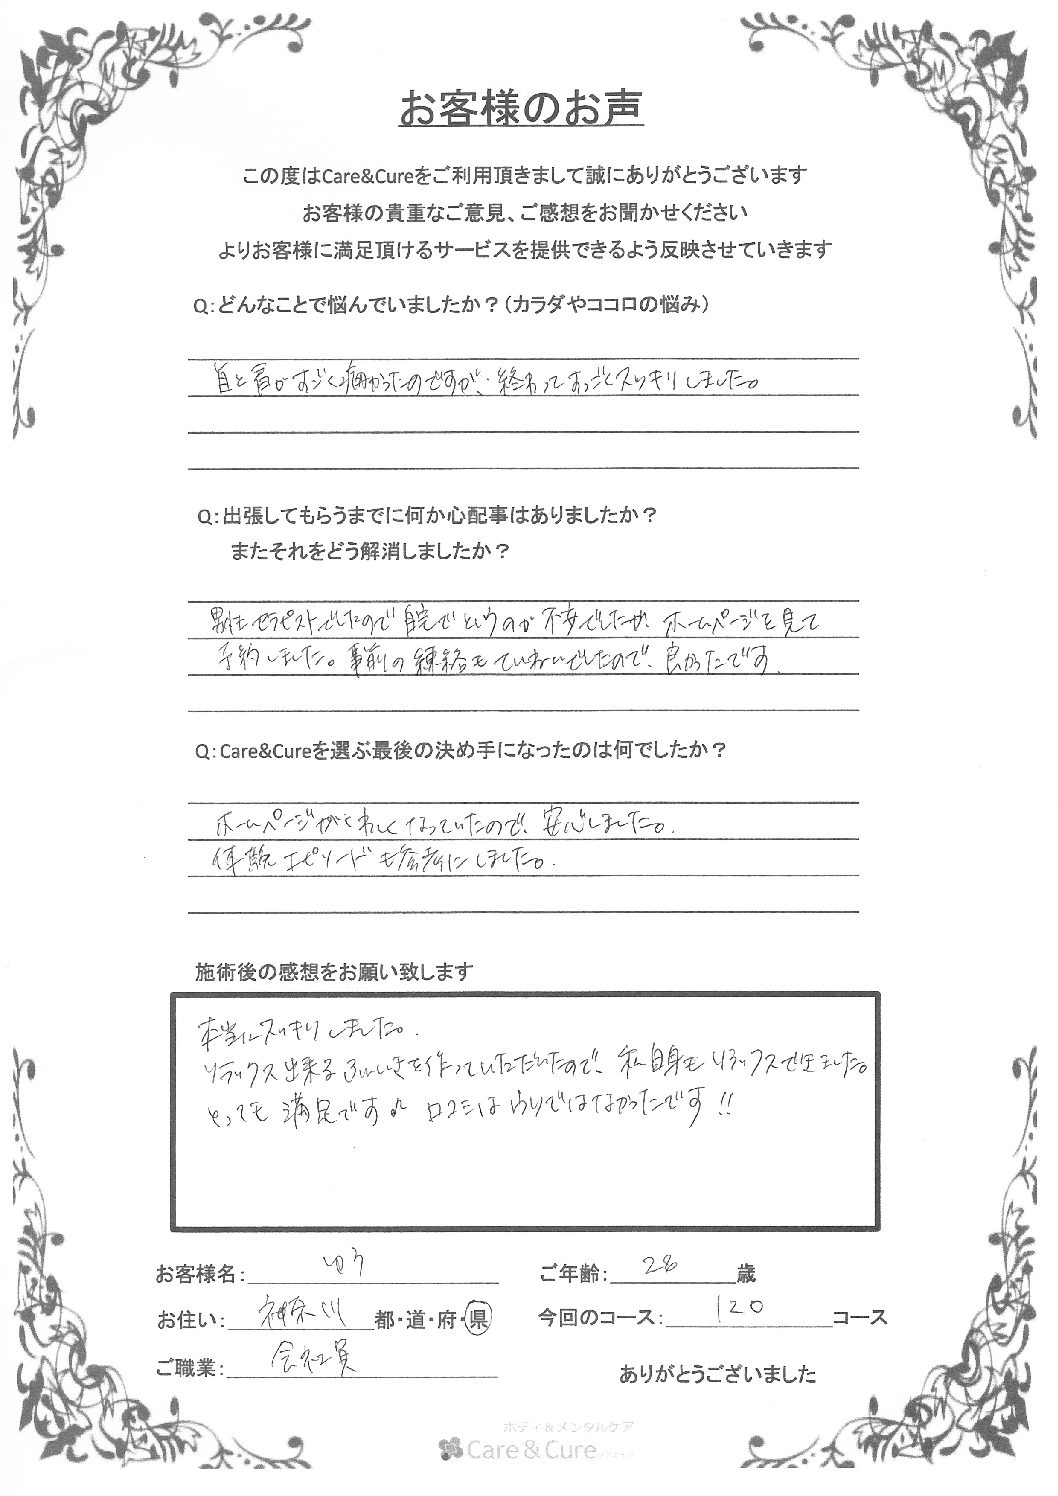 お客様のお声
この度はCare&Cureをご利用頂きまして誠にありがとうございます
お客様の貴重なご意見、ご感想をお聞かせください
よりお客様に満足頂けるサービスを提供できるよう反映させていきます
Q:どんなことで悩んでいましたか?(カラダやココロの悩み)
首と肩がすごく痛かったのですが、終わってすっごくスッキリしました。
Q:出張してもらうまでに何か心配事はありましたか?
またそれをどう解消しましたか?
男性セラピストでしたので自宅でというのが不安でしたが、ホームページを見て
予約しました。事前の練絡もていねいでしたので、良かったです.
Q:Care&Cureを選ぶ最後の決め手になったのは何でしたか?
ホームページがくわしくなっていたので、安心しました。
体験エピソードも参考にしました。
施術後の感想をお願い致します
本当にスッキリしました。
リラックス出来るふんいきを作っていただいたので、私自身もリラックスできました。
とっても満足です♪ 口コミはウソではなかったです!!
お客様名: ゆう
ご年齢: 28 歳
お住い: 神奈川 都・道・府・県
今回のコース: 120 コース
ご職業: 会社員
ありがとうございました
ボディ&メンタルケア
Care&Cure